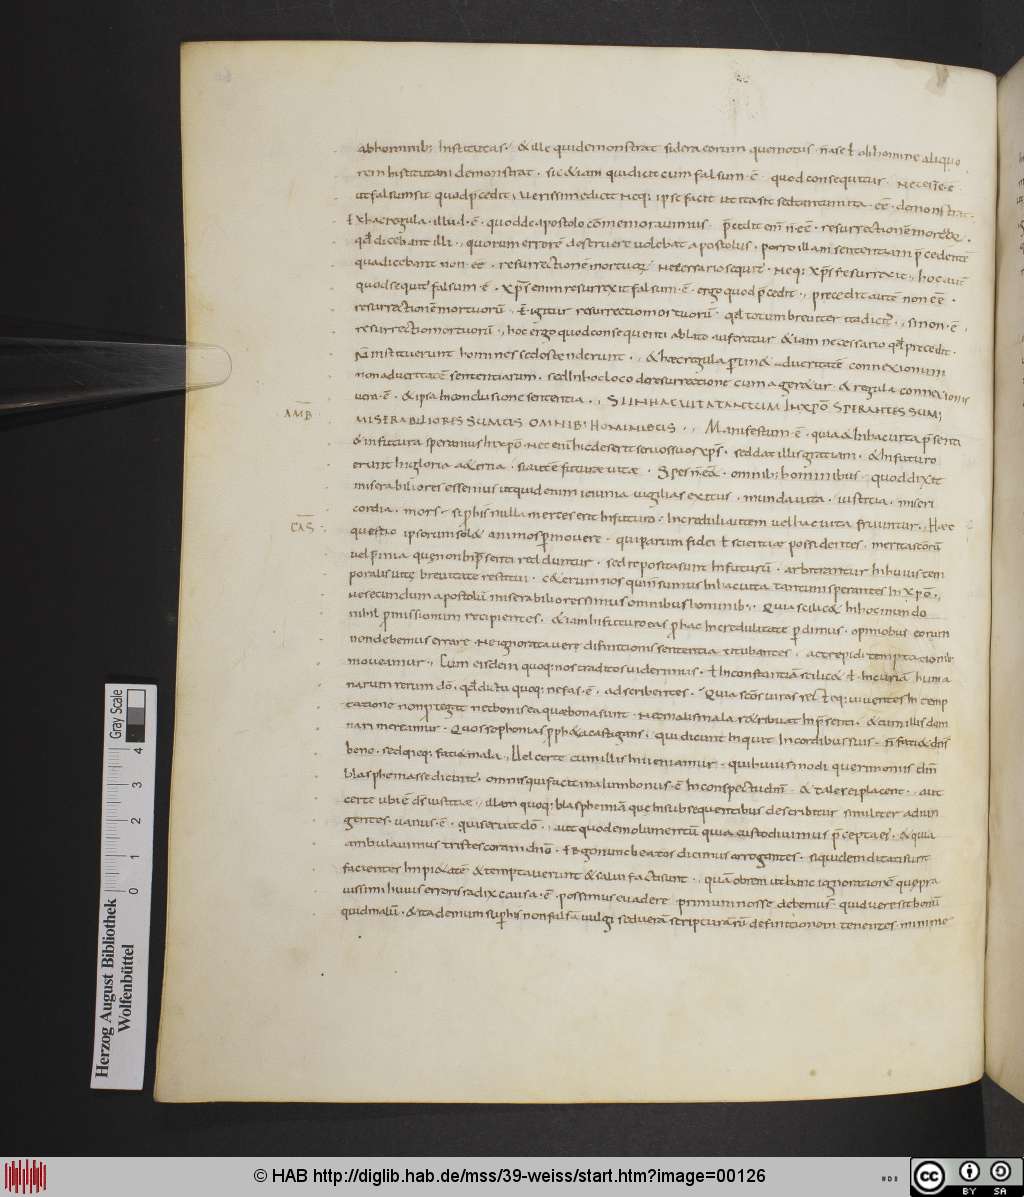 abhominib; Institutas · & ille quidemonstrat sidera eorum quemotus · n̄ a se ł ab homine aliquo
rem Institutam demonstrat · sic & iam quidicit cum falsum · ē · quod consequitur · necesse · ē ·
ut falsum sit quod p̄cedit, verissime dicit neq; ipse facit ut ita sit sed tantum ita · eē · demonstrat ·
Ex hac regula · illud · ē · quod de apostolo cōmemoravimus · p̄cedit enī n̄ · eē · resurrectionē mortuoꝝ ·
qđ dicebant illi, quorum errorē destruere volebat apostolus · porro illam sententiam p̄cedentē
qua dicebant non · eē · resurrectionē mortuoꝝ necessario sequit̄ · neq; xp̄s resurrexit, hoc autē
quod sequit̄ falsum · ē · xp̄s enim resurrexit falsum · ē · ergo quod p̄cedit, precedit autē non eē ·
resurrectionē mortuorū, Ē igitur resurrectio mortuorū · qđ totum breviter ita dicit̄, si non · ē ·
resurrectio mortuorū, hoc ergo quod consequenti ablato auferatur & iam necessario qđ precedit ·
n̄ Instituerunt homines sed ostenderunt, & haec regula p̄tin& ad veritatē connexionum
non ad veritatē sententiarum · sed In hoc loco de resurrectione cum ager&ur · & regula connexionis
vera · ē · & ipsa In conclusione sententia, SI IN HAC VITA TANTUM IN XPŌ SPERANTES SUMUS
AMB̄
MISERABILIORES SUMUS OMNIB; HOMINIBUS, Manifestum · ē · quia & In hac vita p̄senti
& In futura speramus In xpō · nec enī hic deserit servos suos xp̄s · sed dat illis gratiam · & In futuro
erunt In gloria aeterna · si autē futurae vitae · Spes n̄ · eēt · omnib; hominibus · quod dixit
miserabiliores essemus utquid enim ieiunia vigilias exitus · munda vita · iustitia · miseri
cordia · mors · si p̄ his nulla merces erit In futuro · Increduli autem vel hac vita fruuntur · Haec
CAS̄
questio ipsorum sol& animos p̄movere · qui parum fidei ł scientiae possidentes · merita scōrū
vel p̄mia quę non In p̄senti redduntur · sed reposita sunt In futurū · arbitrantur In huius tem
poralis vitę brevitate restitui · c&erum nos quin sumus In hac vita tantum sperantes In xpō ·
ne secundum apostolū miserabiliores simus omnibus hominib; · Quia scilic& In hoc mundo
nihil p̄missionum recipientes · & iam In futuro eas p̄ hac Incredulitate p̄dimus · opinionibus eorum
non debemus errare · ne ignorata verę difinitionis sententia titubantes · ac trepidi temptationib;
moveamur, Cum eisdem quoq; nos traditos viderimus · ł Inconstantiā scilic& ł Incuriā huma
narum rerum dō · qđ dictu quoq; nefas · ē · adscribentes · Quia scōs viros rec̄teq; viventes In temp
tatione non protegit nec bonis ea quae bona sunt · nec malis mala r&ribuat In p̄senti · & cum illis dam
nari mereamur · Quos sophonias p̄ph&a castigans · qui dicunt Inquit In cordibus suis · n̄ faci& dn̄s
bene · sed neq; faci& mala, Vel certe cum illis Inveniamur · qui huiusmodi querimoniis dm̄
blasphemasse dicunt̄ · omnis qui facit malum bonus · ē In conspectu dn̄i · & tales ei placent · aut
certe ubi ē ds̄ iustitiae, illam quoq; blasphemiā quę In subsequentibus describitur similiter adiun
gentes · vanus · ē · qui servit dō, aut quod emolumentū quia custodivimus p̄cepta ei̓ · & quia
ambulavimus tristes coram dn̄o · Ergo nunc beatos dicimus arrogantes · siquidem ditati sunt
facientes Impi&atē & temptaverunt dm̄ & salvi facti sunt, quā obrem ut hanc ignorationē quę pra
vissimi huius erroris radix causa · ē · possimus evadere primum nosse debemus quid vere sit bonū
quid malū · & ita demum si p̄ his non falsā vulgi sed verā scripturarū definitionem tenentes · minime
Herzog August Bibliothek
Wolfenbüttel
0 1 2 3 4
Gray Scale
© HAB http://diglib.hab.de/mss/39-weiss/start.htm?image=00126
cc BY SA